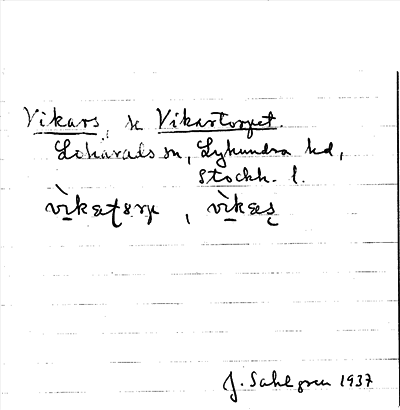 Vikars, se Vikartorpet.
Lohärads sn, Lyhundra hd,
Stockh. l.
vìkaʈørp, vìkas̨
J. Sahlgren 1937